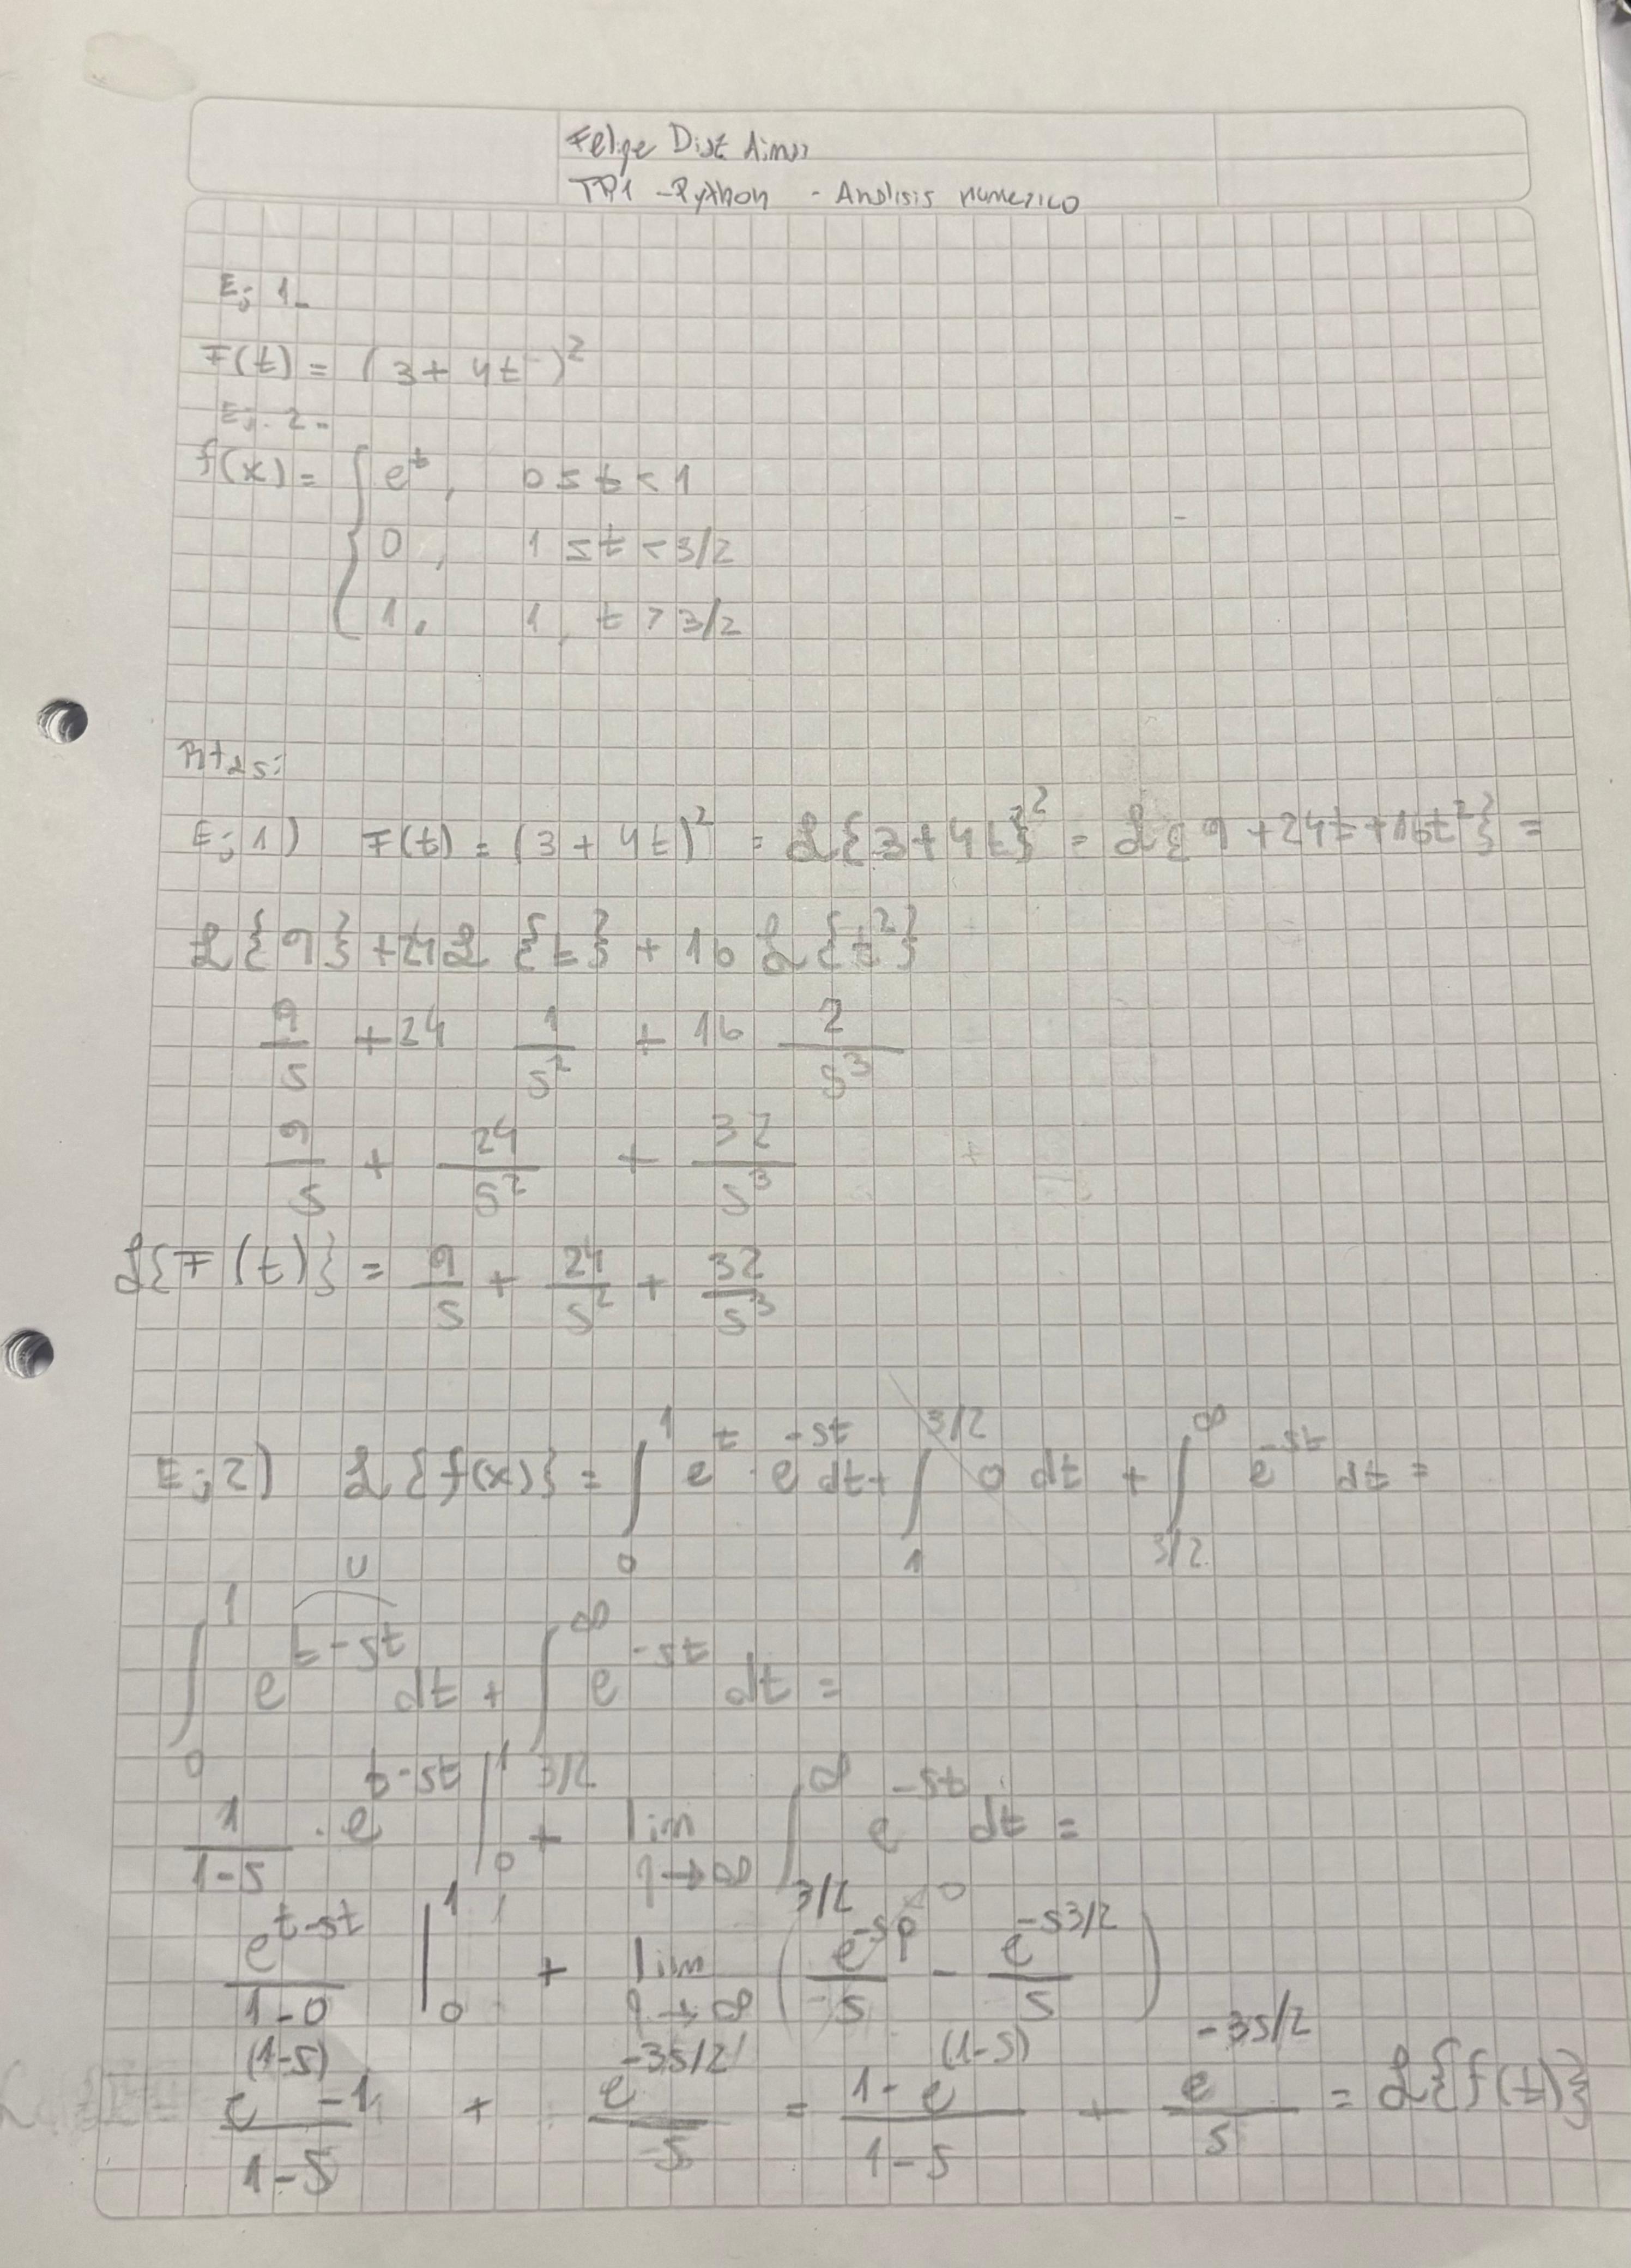 Felipe
TP1 - Python - Analisis numerico
Ej 1-
F(t) = (3 + 4t)²
Ej. 2-
f(x) = { e^t, 0 ≤ t < 1
0, 1 ≤ t < 3/2
1, 1, t > 3/2
Rtas:
Ej 1) F(t) = (3 + 4t)² = ℒ{3+4t}² = ℒ{9+24t+16t²} =
ℒ{9} + 24ℒ{t} + 16ℒ{t²}
9/s + 24 1/s² + 16 2/s³
9/s + 24/s² + 32/s³
ℒ{F(t)} = 9/s + 24/s² + 32/s³
Ej 2) ℒ{f(x)} = ∫₀^1 e^t · e^(-st) dt + ∫₁^(3/2) 0 dt + ∫_(3/2)^∞ e^(-st) dt =
∫₀^1 e^(t-st) dt + ∫_(3/2)^∞ e^(-st) dt =
1/(1-s) · e^(t-st) |₀^1 + lim ∫_(3/2)^∞ e^(-st) dt =
e^(t-st)/(1-0) |₀^1 + lim (e^(-sp)/(-s) - e^(-s3/2)/s)
(e^(1-s) - 1)/(1-s) + e^(-3s/2)/s = (1 - e^(1-s))/(1-s) + e^(-3s/2)/s = ℒ{f(t)}